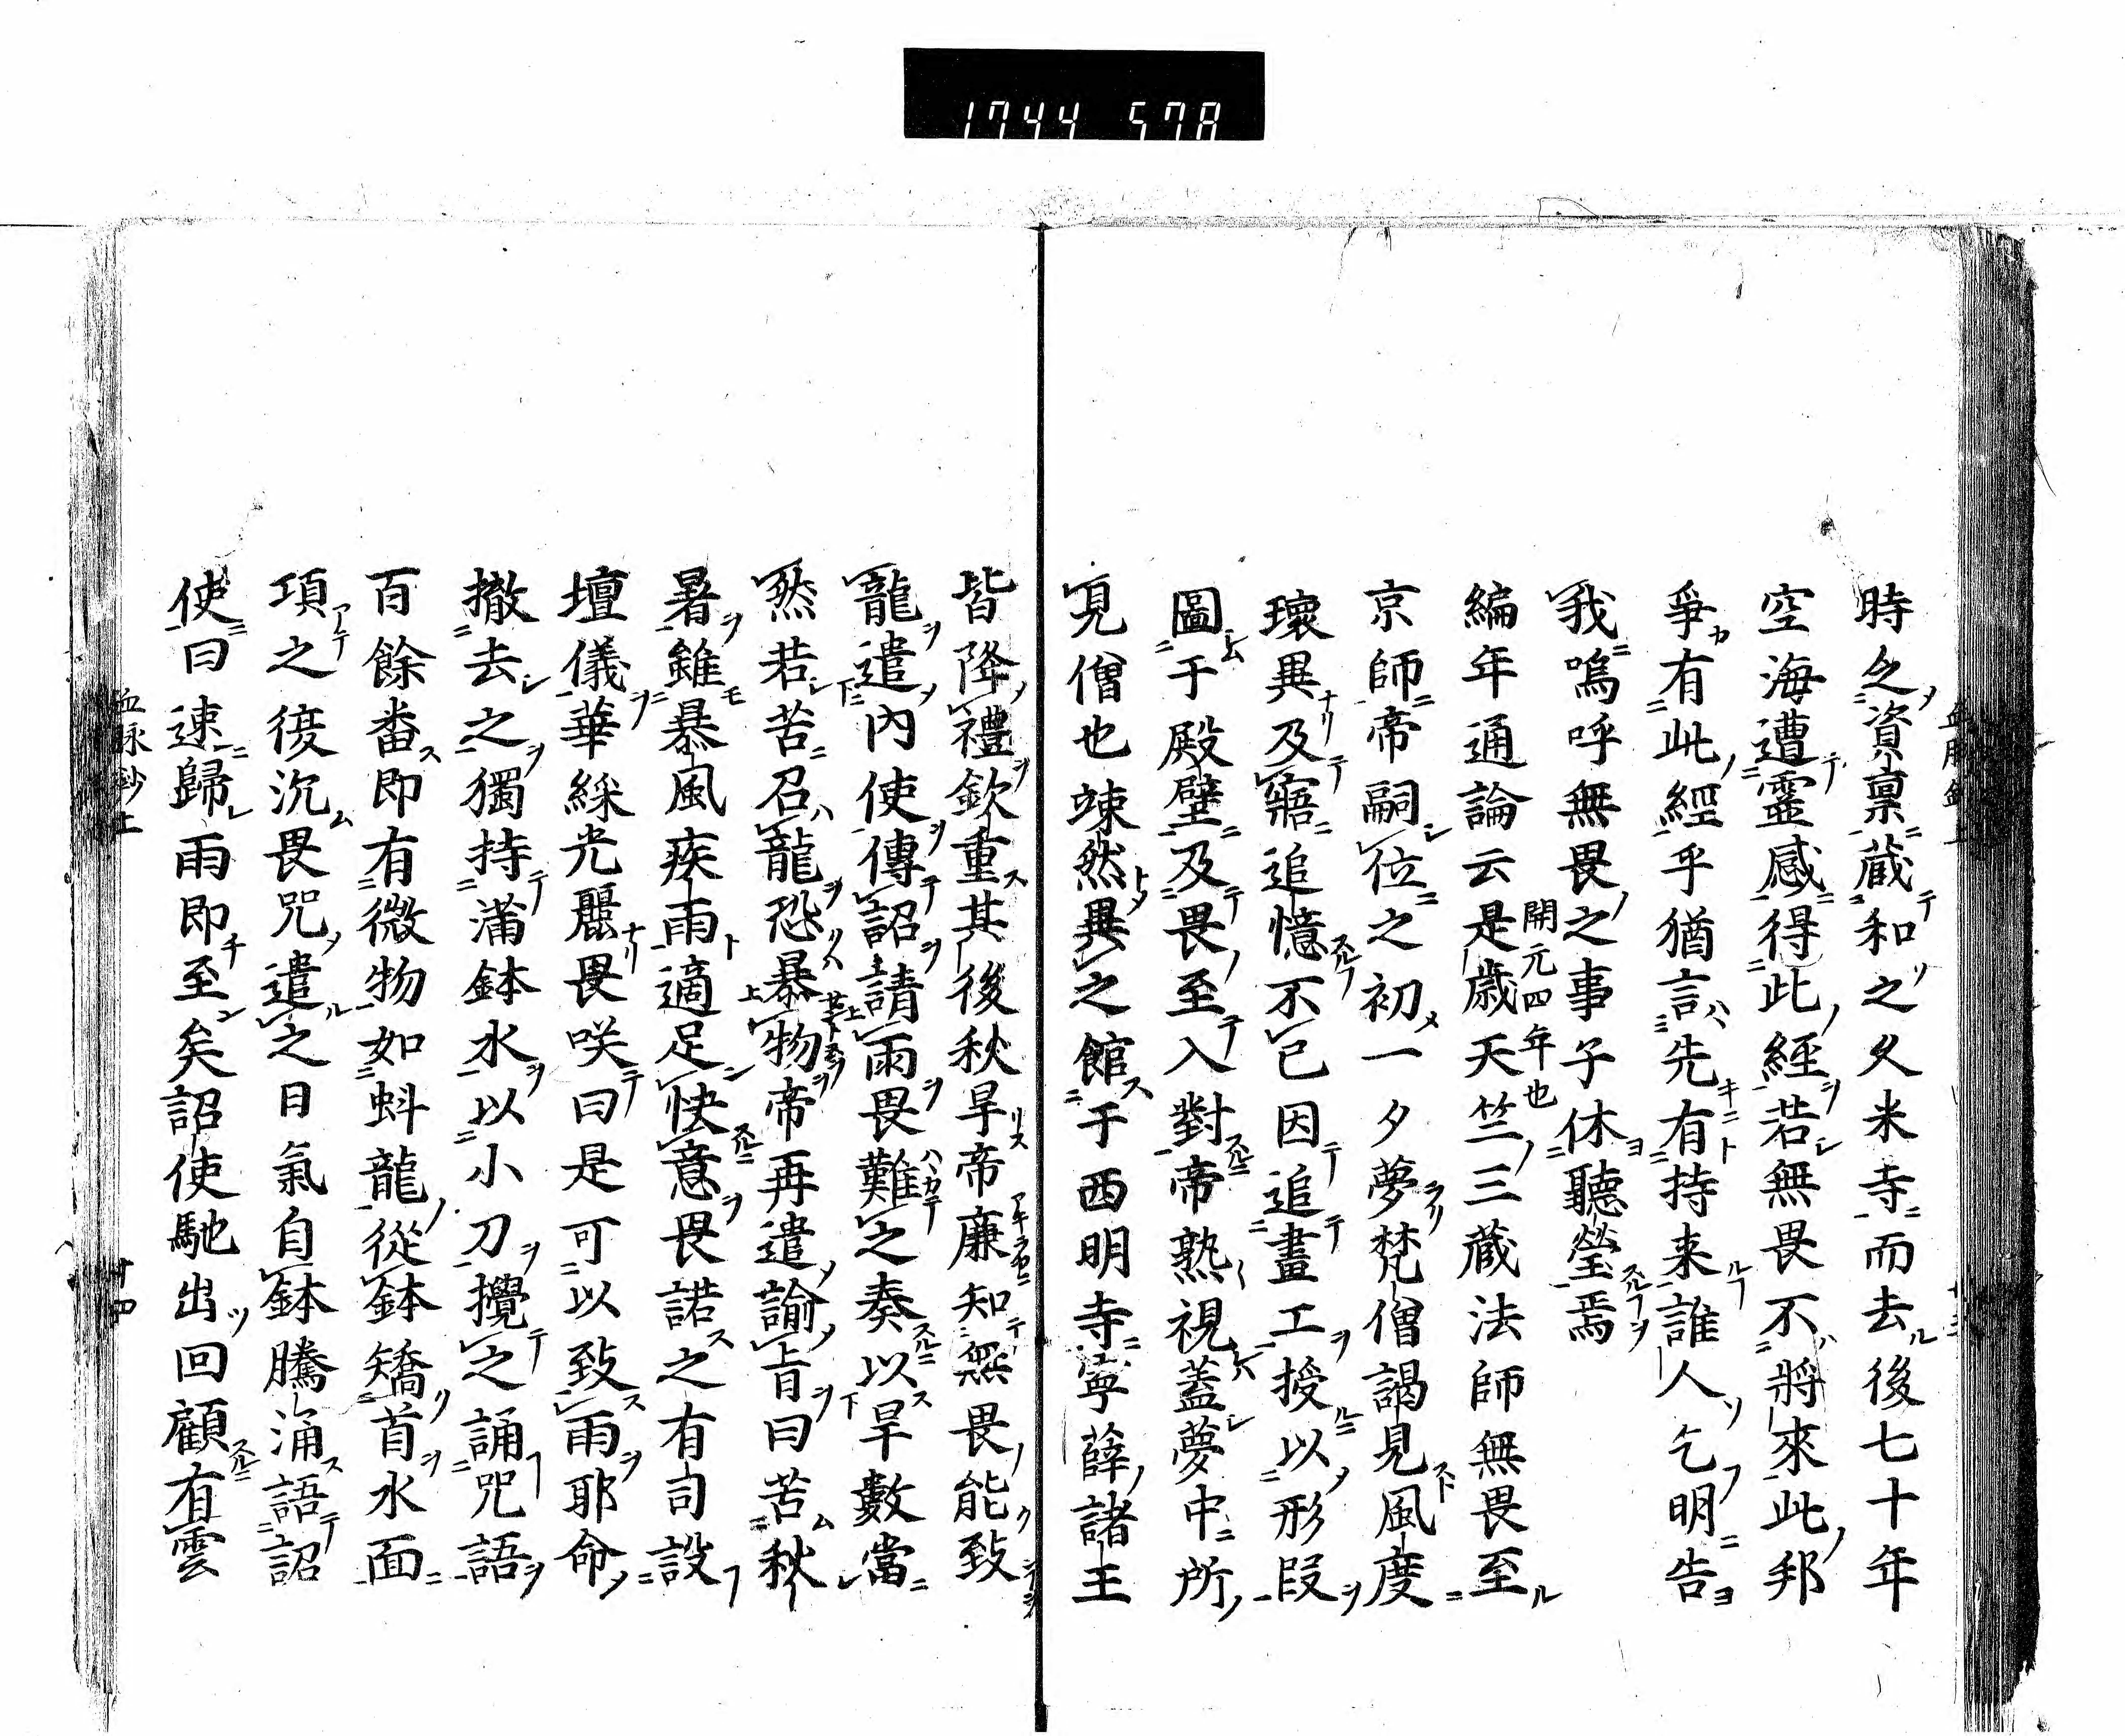 1744 578
時之資稟藏和之久米寺而去後七十年
空海遭靈感得此經若無畏不將來此邦
爭有此經乎猶言先有持来誰人乞明告
我嗚呼無畏之事子休聽瑩焉
編年通論云是歳開元四年也天竺三藏法師無畏至
京師帝嗣位之初一夕夢梵僧謁見風度
瓌異及寤追憶不已因追畫工授以形段
圖于殿壁及畏至入對帝熟視蓋夢中所
見僧也竦然異之館于西明寺寧薛諸王
皆降禮欽重其後秋旱帝廉知無畏能致
龍遣內使傳詔請雨畏難之奏以旱數當
然若苦召龍恐暴物帝再遣諭旨曰苦秋
暑雖暴風疾雨適足快意畏諾之有司設
壇儀華綵光麗畏咲曰是可以致雨耶命
撤去之獨持滿鉢水以小刀攪之誦咒語
百餘畨即有微物如蚪龍從鉢矯首水面
項之復沉畏咒遣之日氣自鉢騰涌語詔
使曰速歸雨即至矣詔使馳出回顧有雲
血脉鈔上
十四